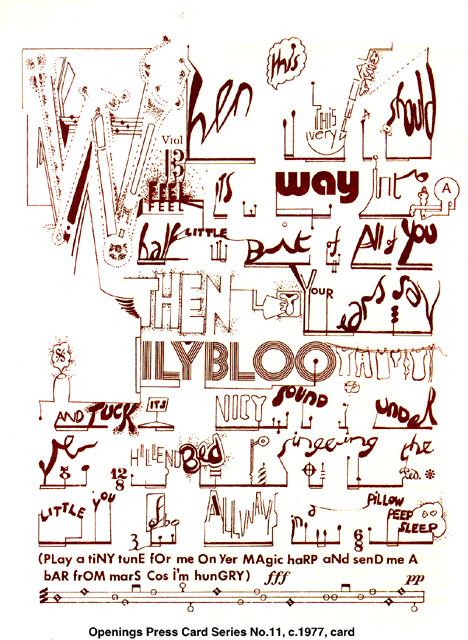 When this THIS very should
Viol
13
FEEL
FEEL its way Into A
half LITTLE Bit of All of YOU
THEN YOUR ears say
ILYBLOO
%
AND TUCK ITS NICY SOUND under
yer 12/8 HILLEND Bed singeering the
LITTLE you ALLWAYS in a PILLOW PEEP SLEEP
3 6/8
(PLay a tiNY tunE fOr me On Yer MAgic haRP aNd senD me A
bAR frOM marS Cos i'm hunGRY) fff pp
Openings Press Card Series No.11, c.1977, card